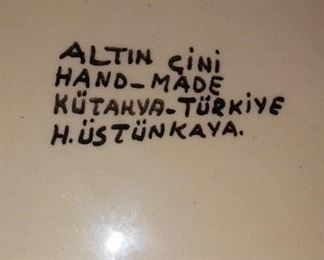 ALTIN ÇİNİ
HAND-MADE
KÜTAHYA-TÜRKİYE
H.ÜSTÜNKAYA.